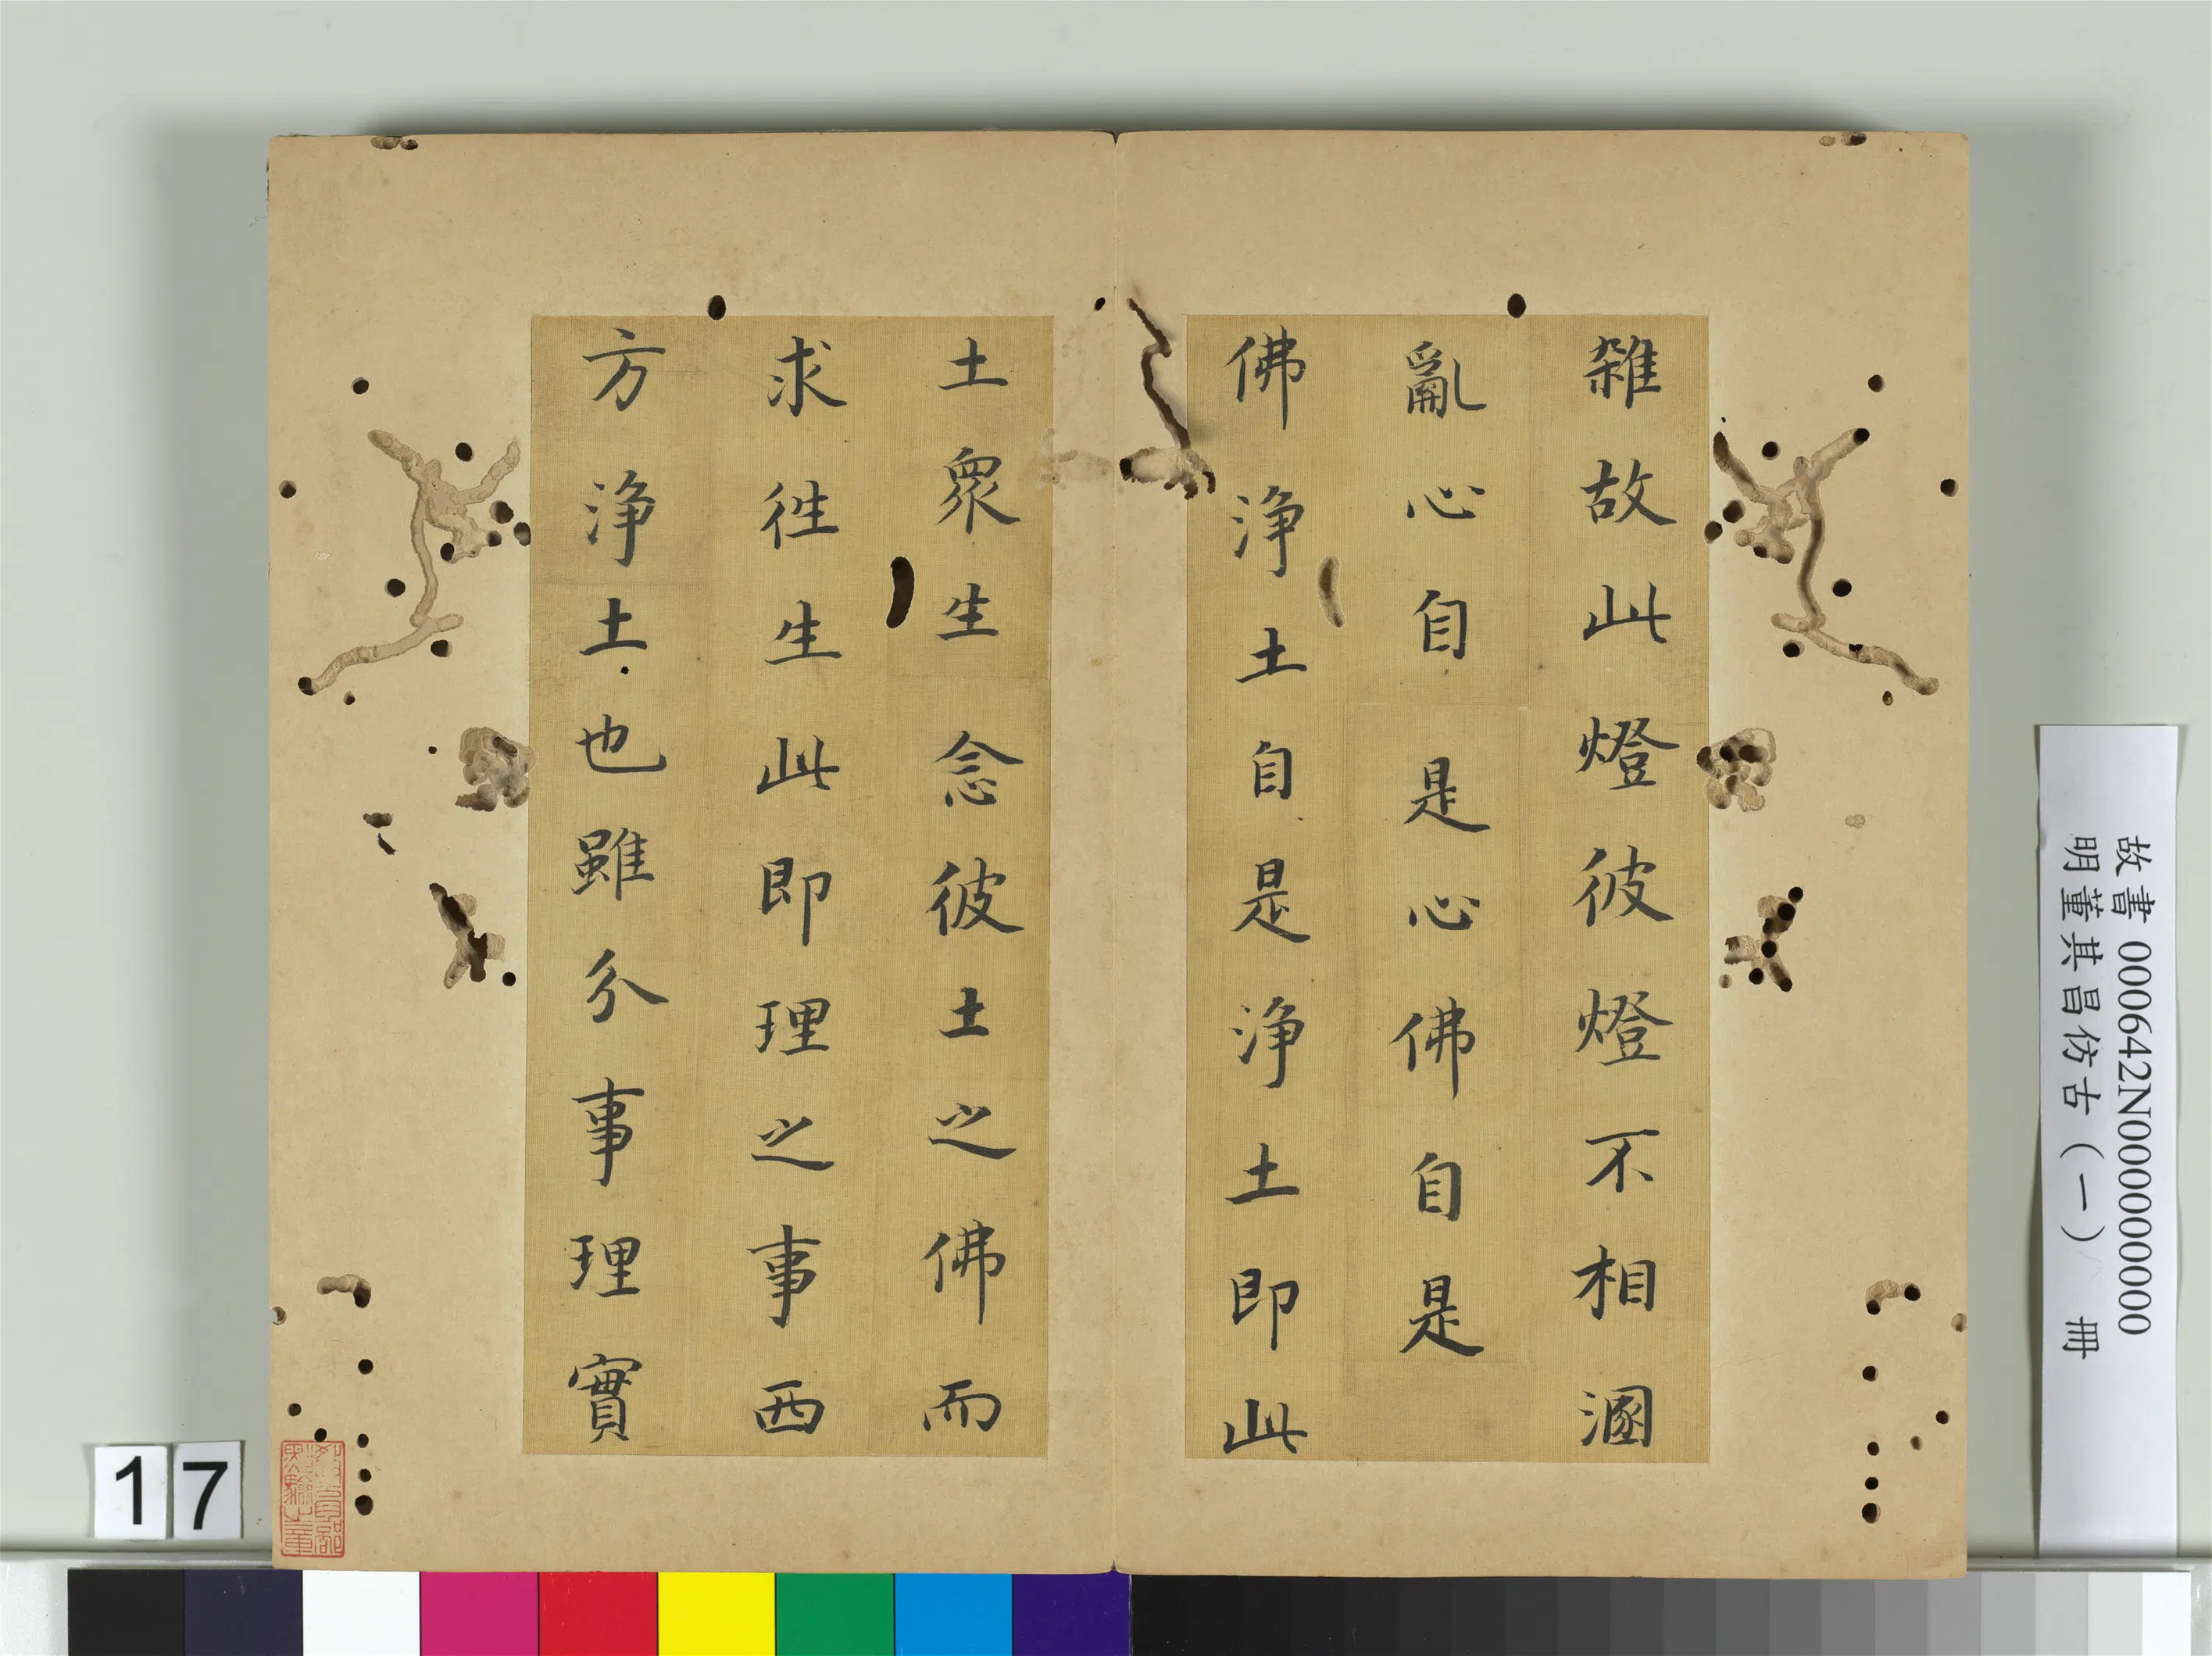 雜故此燈彼燈不相溷
亂心自是心佛自是
佛淨土自是淨土即此
土眾生念彼土之佛而
求徃生此即理之事西
方淨土也雖分事理實
故書 000642N000000000
明董其昌仿古(一) 冊
17